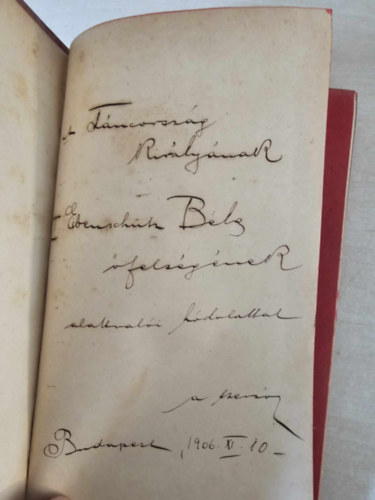 A Táncország
királyának
I. Ebenschütz Béla
őfelségének
alattvalói hódolattal
a szerző
Budapest, 1906. XI. 10.